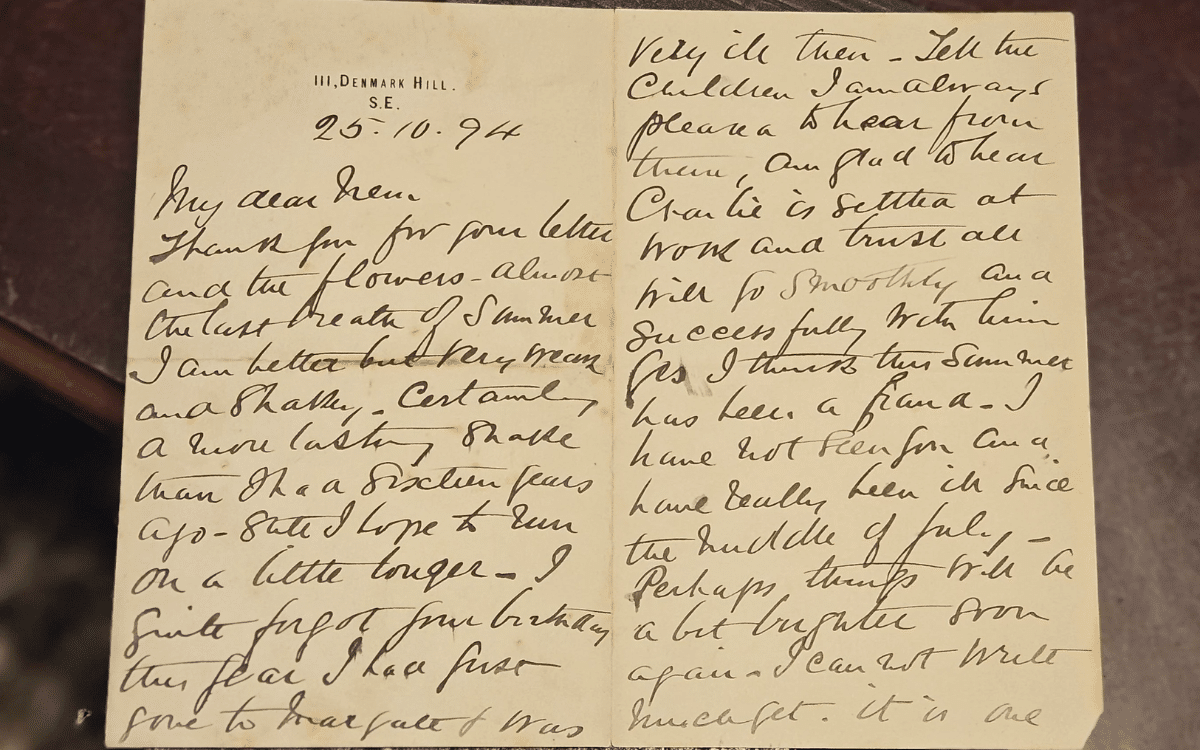 111, DENMARK HILL.
S.E.
25.10.94
My dear
Thank you for your letter
and the flowers - almost
the last breath of Summer
I am better but very weak
and Shakey - Certainly
a more lasting Shake
than I had Sixteen years
ago - Still I hope to run
on a little longer - I
quite forgot your birthday
this year I had just
gone to Margate & was
very ill then - Tell the
Children I am always
pleased to hear from
them, am glad to hear
Charlie is settled at
work and trust all
will go Smoothly and
Successfully with him
Yes I think this Summer
has been a fraud - I
have not seen you and
have really been ill Since
the middle of July -
Perhaps things will be
a bit brighter soon
again - I can not write
much yet. it is one